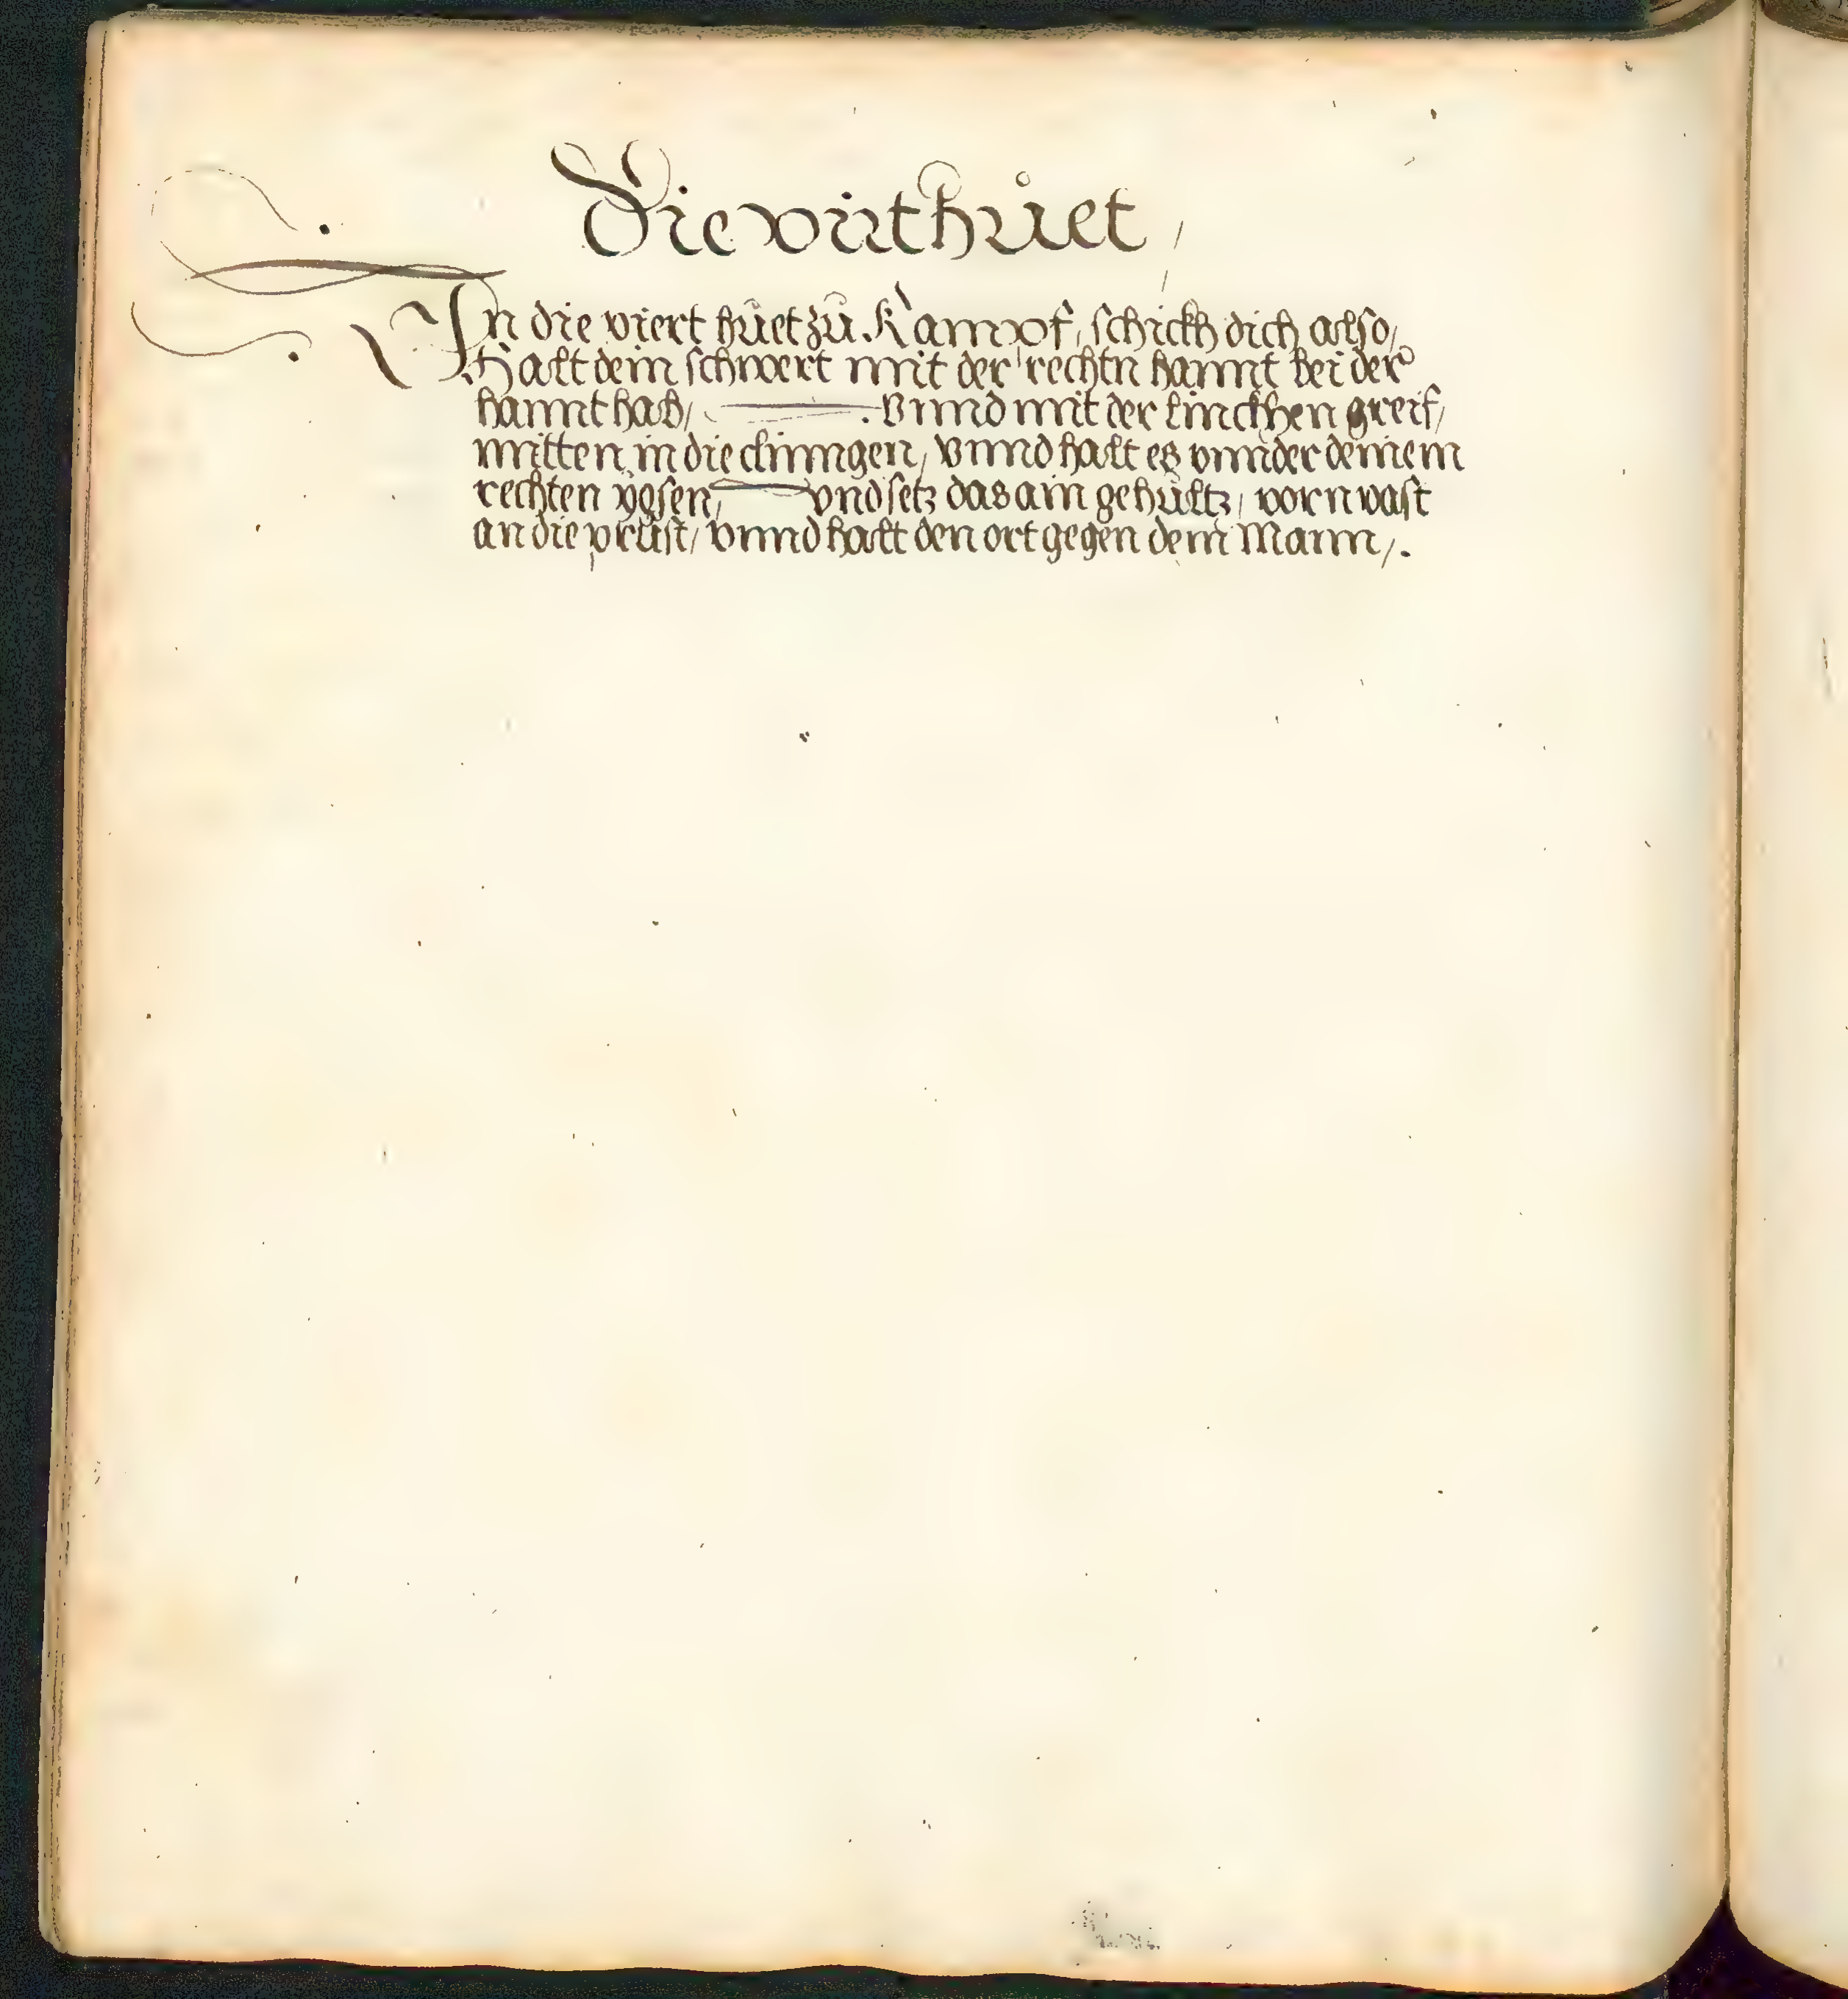 Die virt hůet /
In die viert hůet zů Kampf, schickh dich also,
Halt dein schwert mit der rechtn hannt bei der
hannt hab, Vnnd mit der linckhen greif,
mitten in die clinngen, vnnd halt es vnnder deinem
rechten yͦgsen, vnd setz das ain gehültz, vorn vast
an die prust, vnnd halt den ort gegen dem Mann,.